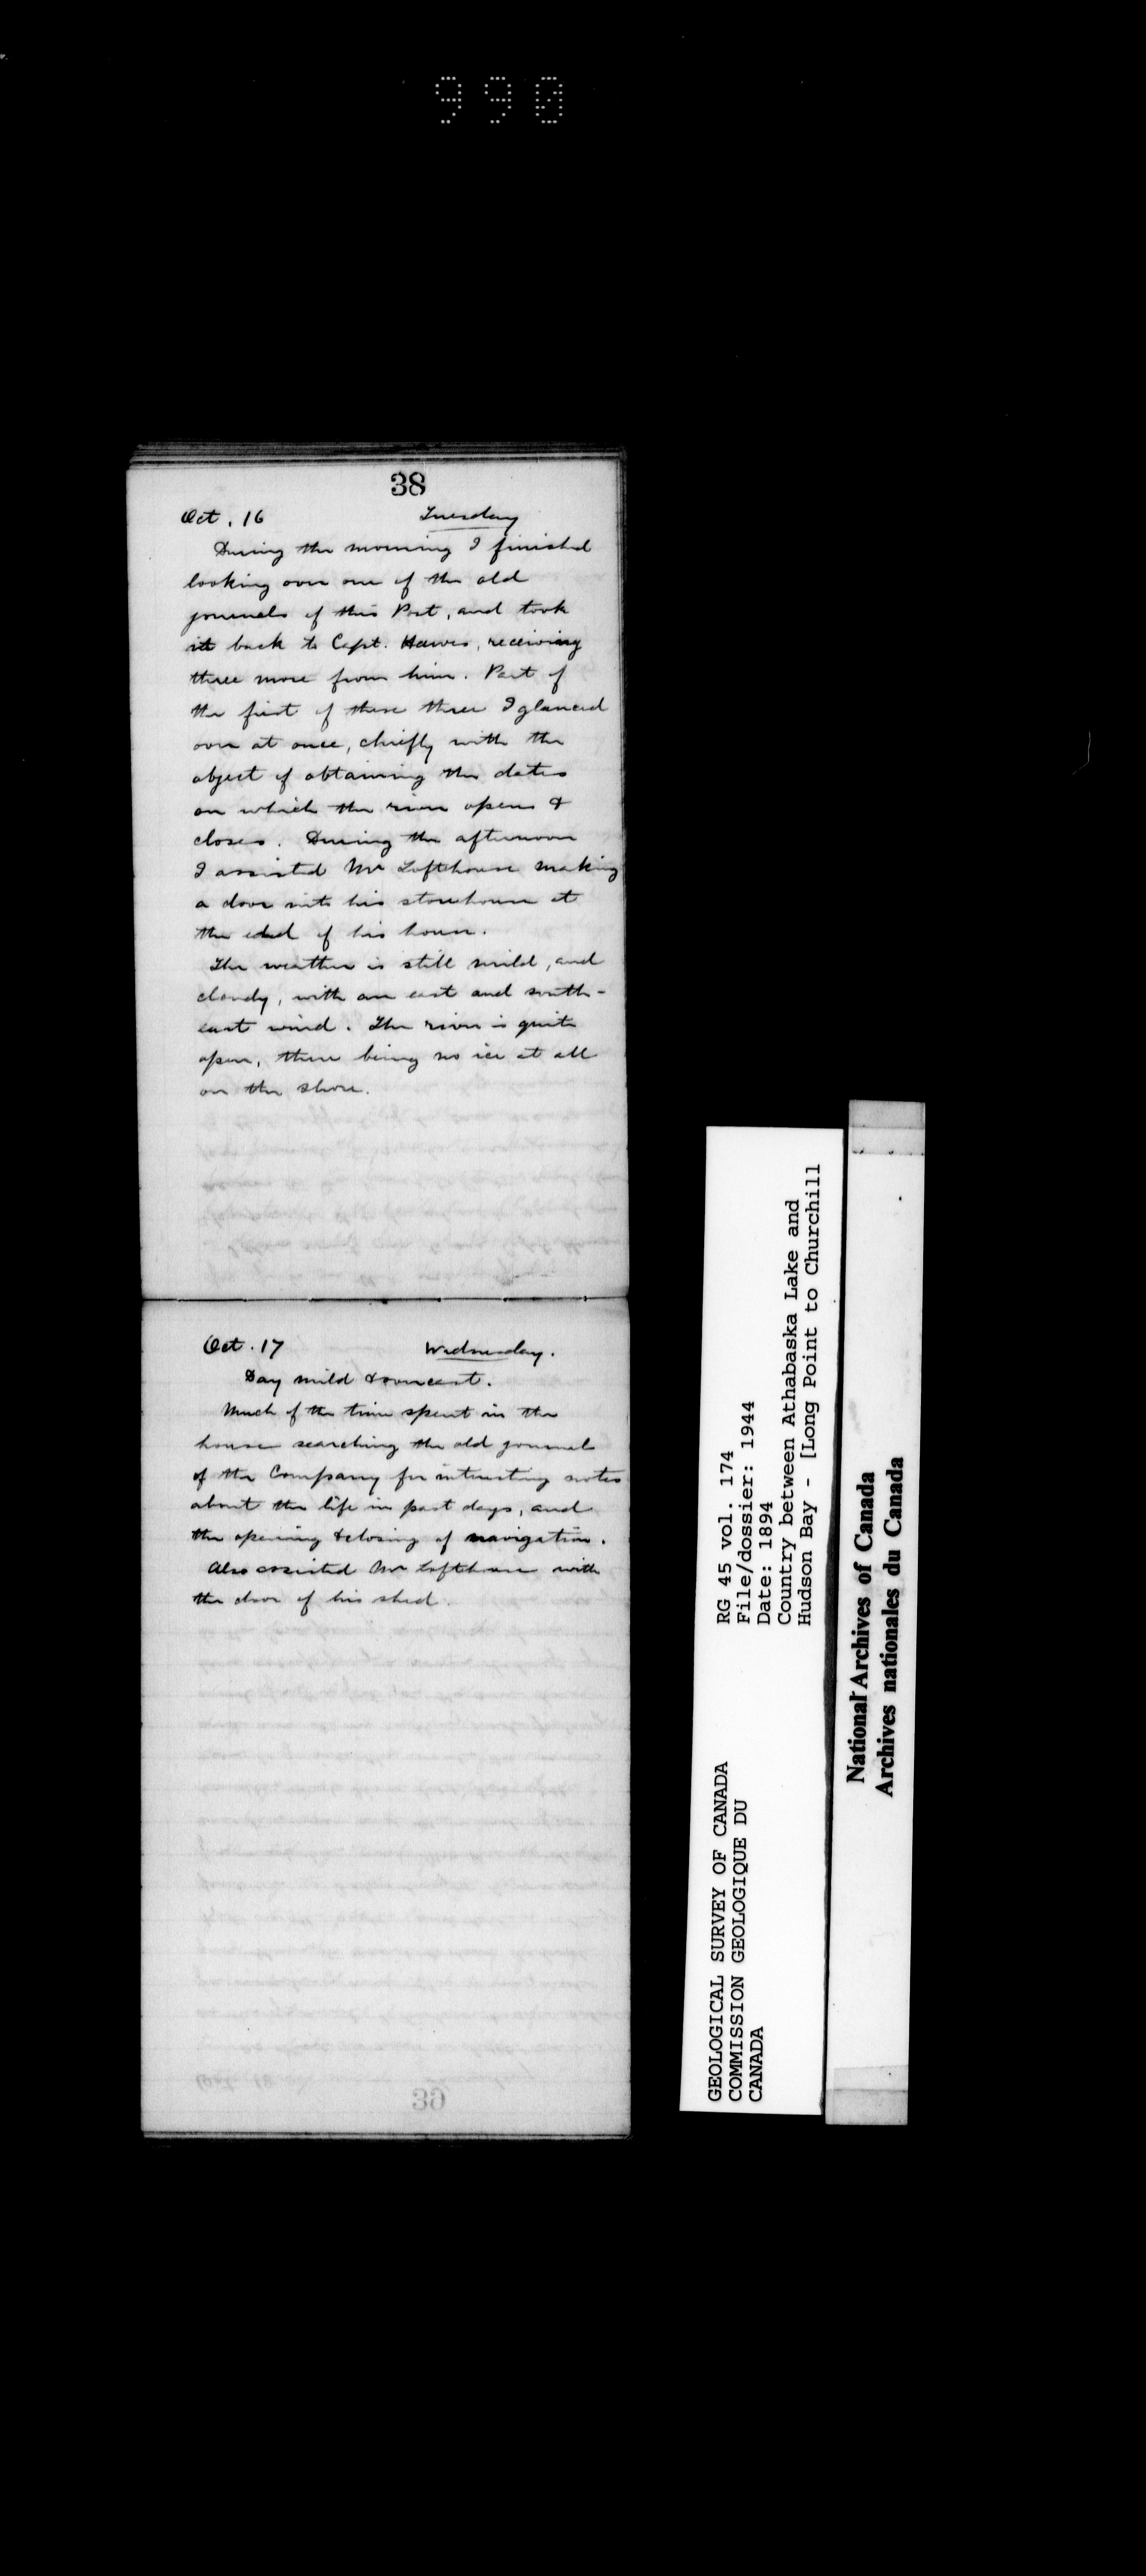 990
38
Oct. 16 Tuesday
During the morning I finished
looking over one of the old
journals of this Post, and took
it back to Capt. Hawes, receiving
three more from him. Part of
the first of these three I glanced
over at once, chiefly with the
object of obtaining the dates
on which the river opens &
closes. During the afternoon
I assisted Mr Lofthouse making
a door into his storehouse at
the end of his house.
The weather is still mild, and
cloudy, with an east and south-
east wind. The river is quite
open, there being no ice at all
on the shore.
Oct. 17 Wednesday.
Day mild & overcast.
Much of the time spent in the
house searching the old journals
of the Company for interesting notes
about the life in past days, and
the opening & closing of navigation.
Also assisted Mr Lofthouse with
the door of his shed.
39
GEOLOGICAL SURVEY OF CANADA
COMMISSION GEOLOGIQUE DU
CANADA
RG 45 vol. 174
File/dossier: 1944
Date: 1894
Country between Athabaska Lake and
Hudson Bay - [Long Point to Churchill
National Archives of Canada
Archives nationales du Canada